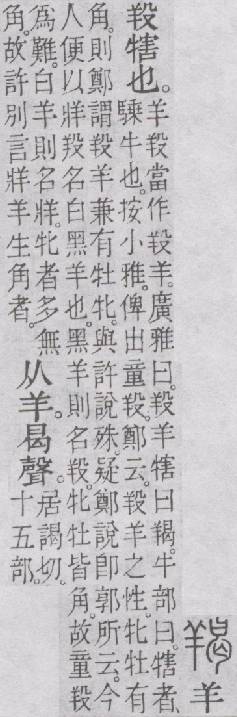 羯 羊
羖犗也。
羊羖當作羖羊。廣雅曰。羖羊犗曰羯。牛部曰。犗者、
騬牛也。按小雅。俾出童羖。鄭云。羖羊之性。牝牡有
角。則鄭謂羖羊兼有牡牝。與許說殊。疑鄭說卽郭所云。今
人便以牂羖名白黑羊也。黑羊則名羖。牝牡皆角。故童羖
爲難。白羊則名牂。牝者多無
角。故許別言牂羊生角者。
从羊。曷聲。
居謁切。
十五部。